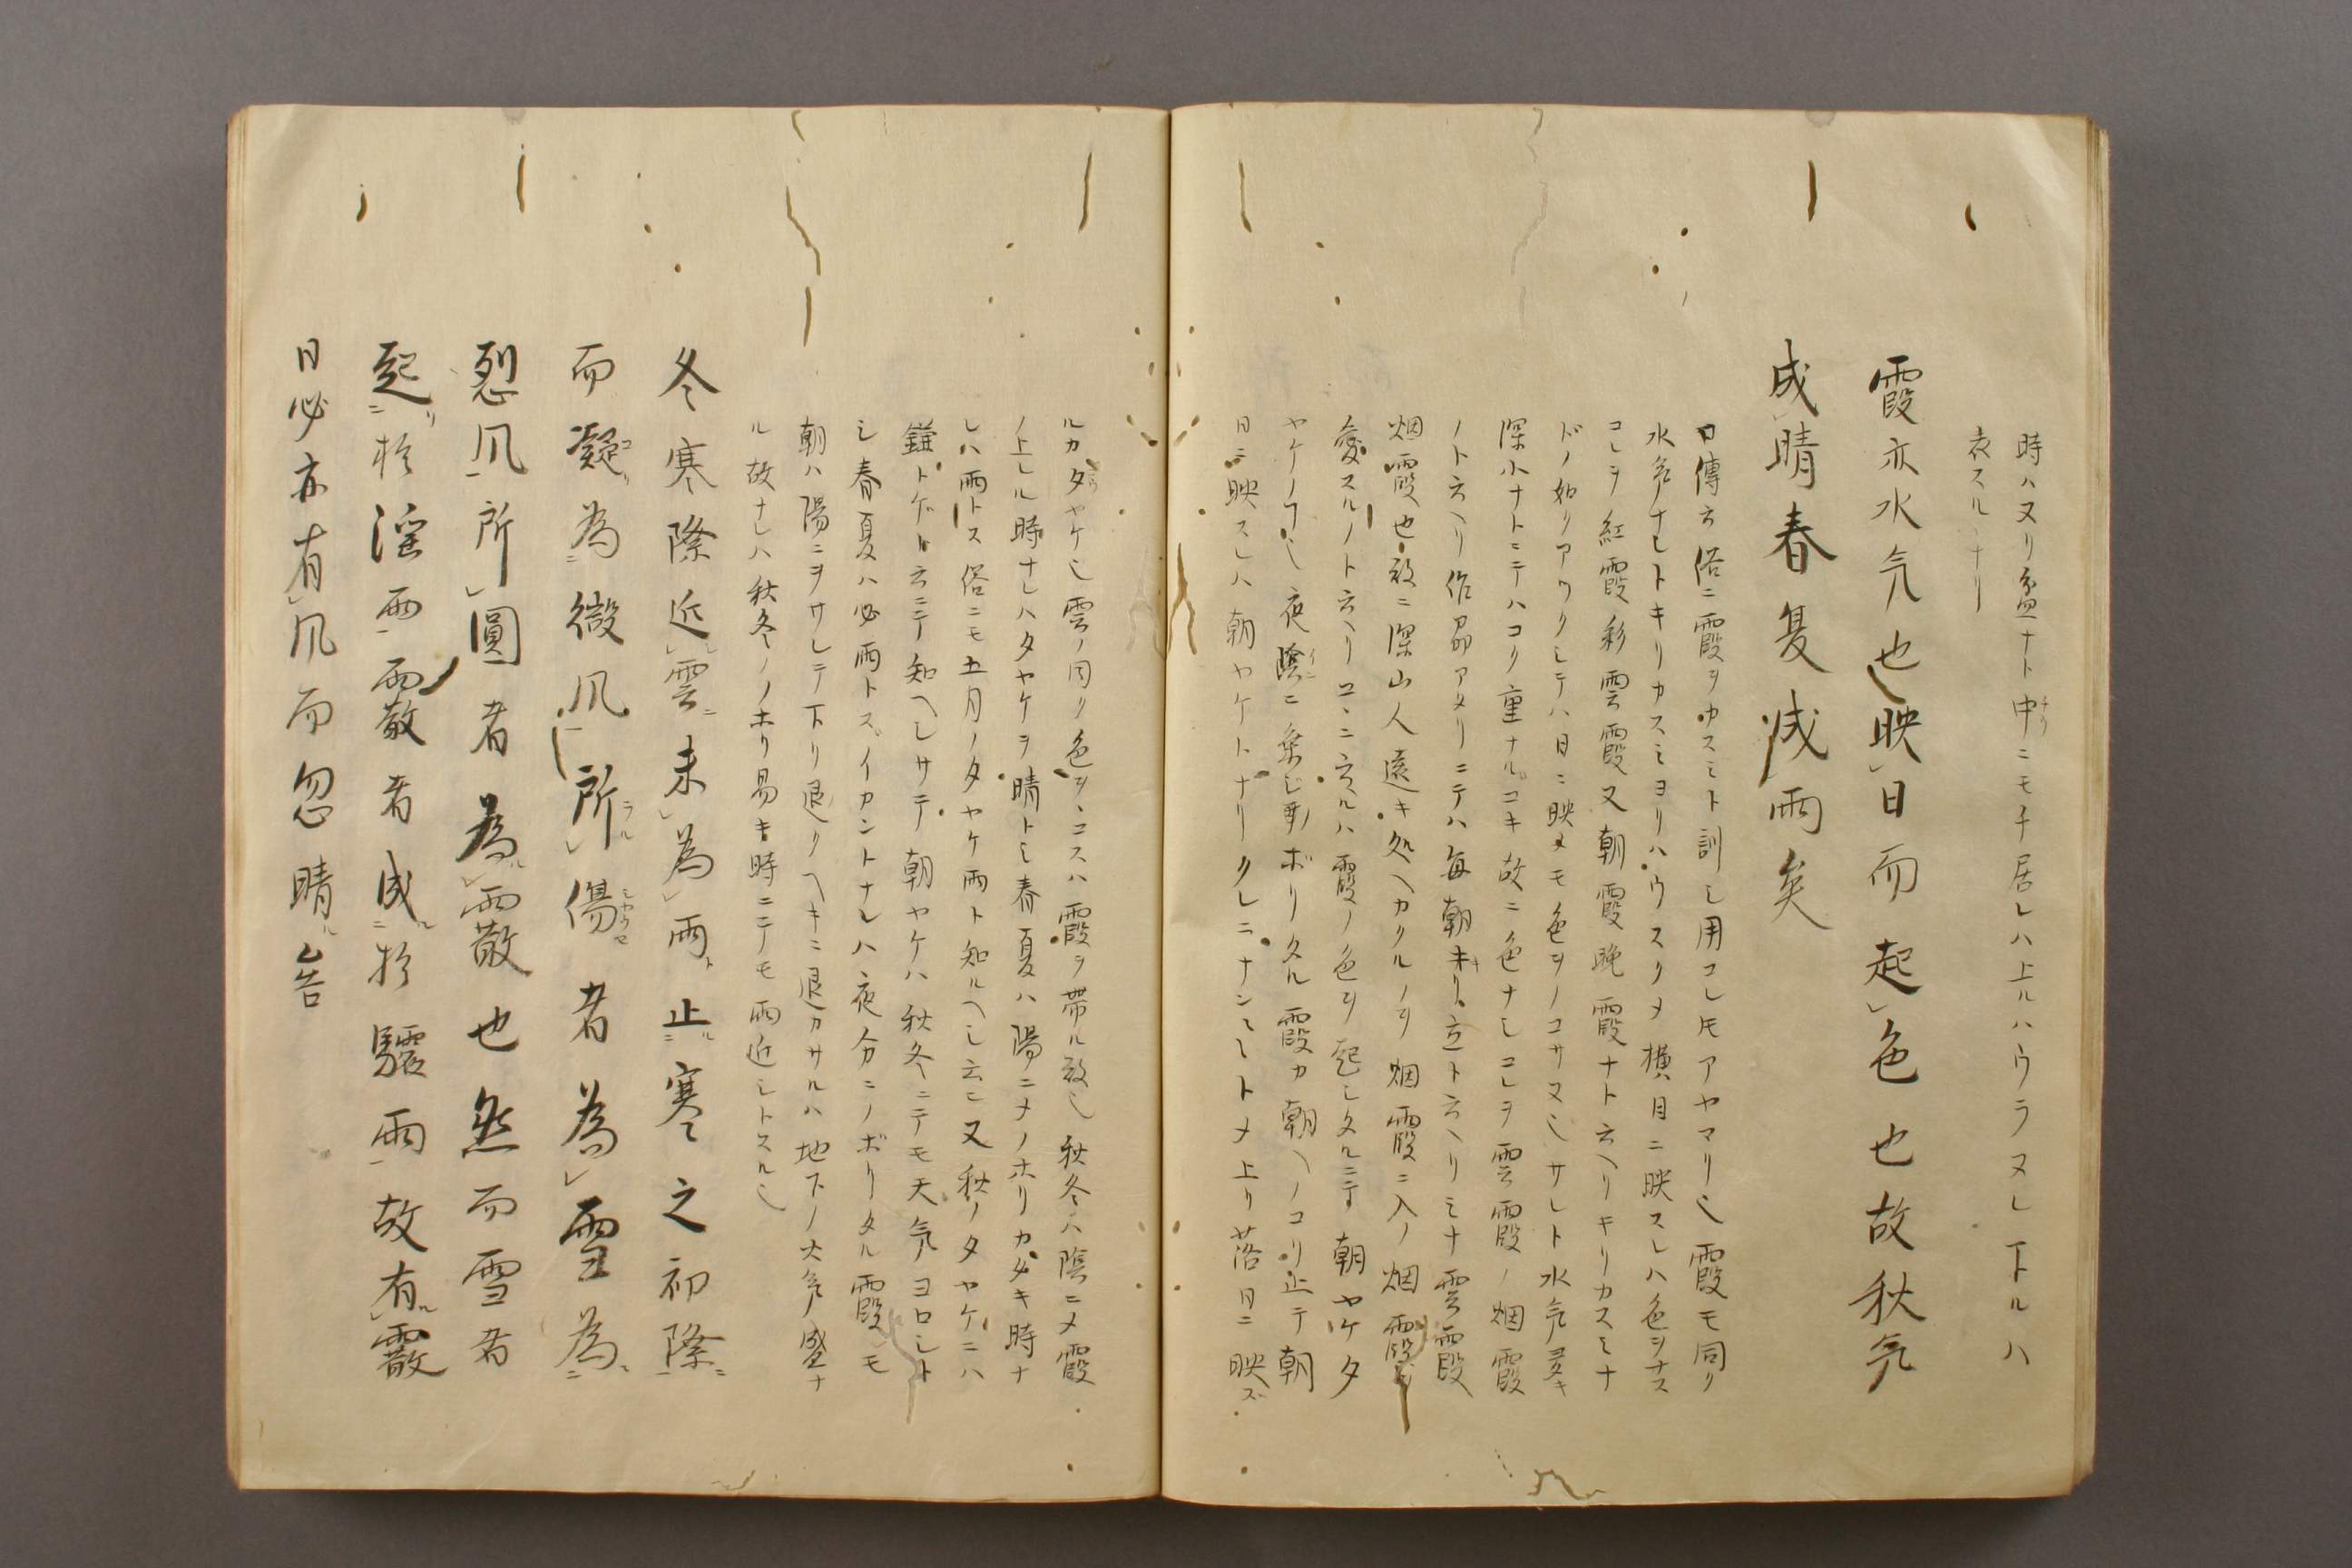 時ハヌリ盃ナト中ニモチ居レハ上ルハウラヌレ下ルハ
衣スルナリ
霞亦水气也映日而起色也故秋气
成晴春夏成雨矣
口傳云俗ニ霞ヲカスミト訓シ用コレ𪜈アヤマリ也霞モ同ク
水気ナレトキリカスミヨリハウスクメ横目ニ映スレハ色ヲナス
コレヲ紅霞彩雲霞又朝霞晩霞ナト云ヘリキリカスミナ
ドノ如クアツクシテハ日ニ映メモ色ヲノコサヌ也サレト水気
深小ナトニテハコク重ナル故ニ色ナシコレヲ雲霞ノ烟霞
ノト云ヘリ作アタリニテハ毎朝キリ立ト云ヘリミナ雲霞
烟霞也故ニ深山人遠キ処ヘカクルヽヲ烟霞ニ入ノ烟霞ヲ
愛スルノト云ヘリコヽニ云ルハ霞ノ色ヲ起シタルニテ朝ヤケタ
ヤケノ也夜陰ニ乗シノボリタル霞カ朝ヘノコリ止テ朝
日ニ映スレハ朝ヤケトナリクレニナンントメ上リ落日ニ映ズ
ルカタヤケ也雲ノ同ク色ヲコスハ霞ヲ帯ル故也秋冬ハ陰ニメ霞
ノ上レル時ナレハタヤケヲ晴トシ春夏ハ陽ニメノホリカタキ時ナ
レハ雨トス俗ニモ五月ノタヤケ雨ト知ルヘシ云又秋ノタヤケニハ
鎌トゲト云ニテ知ヘシサテ朝ヤケハ秋冬ニテモ天気ヨロシト
シ春夏ハ必雨トスイカントナレハ夜分ニノボリタル霞モ
朝ハ陽ニヲサレテ下リ退クヘキニ退カサルハ地下ノ水気ノ盛ナ
ル故ナレハ秋冬ノノホリ易キ時ニテモ雨近シトスル也
冬寒際近雲未為雨止寒之初際
而凝為微凨所傷者為雪為
烈凨所圓者為霰也然而雪者
起於淫雨霰者成於驟雨故有霰
日必亦有凨而忽晴